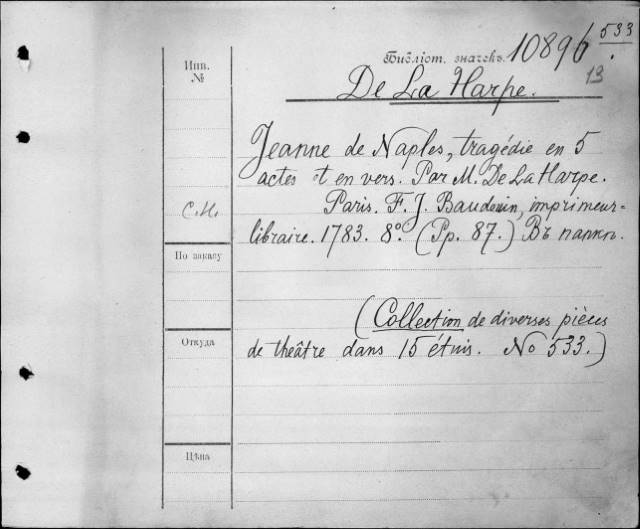 Библіот. значекъ. 10896 533
13
Инв. №
De La Harpe.
Jeanne de Naples, tragédie en 5
actes et en vers. Par M. De La Harpe.
С.Н. Paris. F. J. Baudouin, imprimeur-
libraire. 1783. 8º. (Pp. 87.) Въ папкѣ.
По заказу
(Collection de diverses pièces
Откуда
de theâtre dans 15 étuis. No 533.)
Цѣна